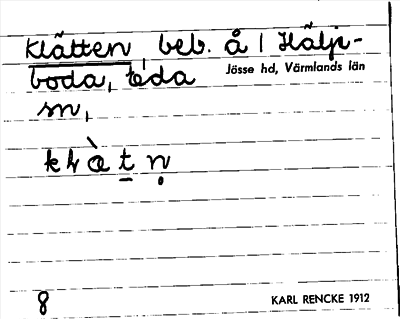 Klätten, beb. å | Hälje-
boda, Eda
Jösse hd, Värmlands län
sn,
8
KARL RENCKE 1912